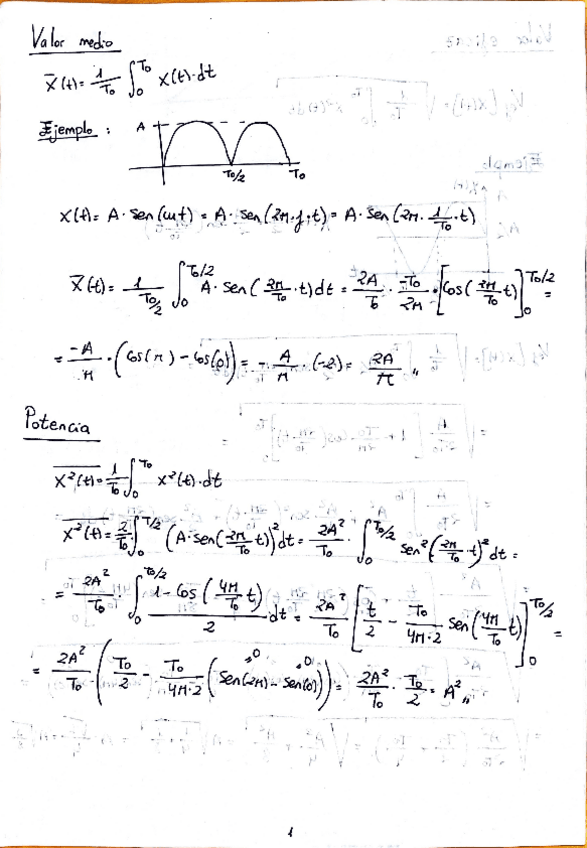 Valor medio
x̄(t) = 1/T₀ ∫₀^T₀ x(t)·dt
Ejemplo :
A
T₀/2 T₀
x(t) = A· sen(ωt) = A· sen(2π·f·t) = A· sen(2π· 1/T₀ ·t)
x̄(t) = 1/(T₀/2) ∫₀^T₀/2 A· sen(2π/T₀ ·t)dt = 2A/T₀ · -T₀/2π · [cos(2π/T₀ t)]₀^T₀/2 =
= -A/π · (cos(π) - cos(0)) = - A/π · (-2) = 2A/π „
Potencia
x²(t) = 1/T₀ ∫₀^T₀ x²(t)·dt
x²(t) = 2/T₀ ∫₀^T₀/2 (A·sen(2π/T₀ ·t))² dt = 2A²/T₀ · ∫₀^T₀/2 sen²(2π/T₀ ·t)² dt =
= 2A²/T₀ · ∫₀^T₀/2 (1 - cos(4π/T₀ t))/2 ·dt = 2A²/T₀ [t/2 - T₀/(4π·2) sen(4π/T₀ t)]₀^T₀/2 =
= 2A²/T₀ (T₀/2 - T₀/(4π·2) (sen(2π)^0 - sen(0)^0)) = 2A²/T₀ · T₀/2 = A² „
1